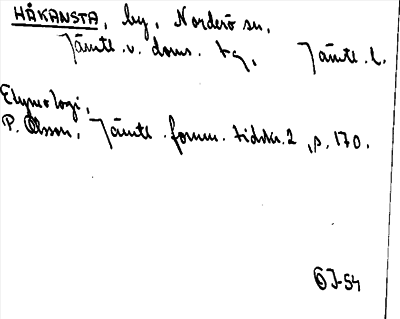 HÅKANSTA, by, Norderö sn,
Jämtl. v. doms. tg, Jämtl. l.
Etymologi,
P. Olsson, Jämtl. fornm. tidskr. 2, s. 170.
ÖJ-54